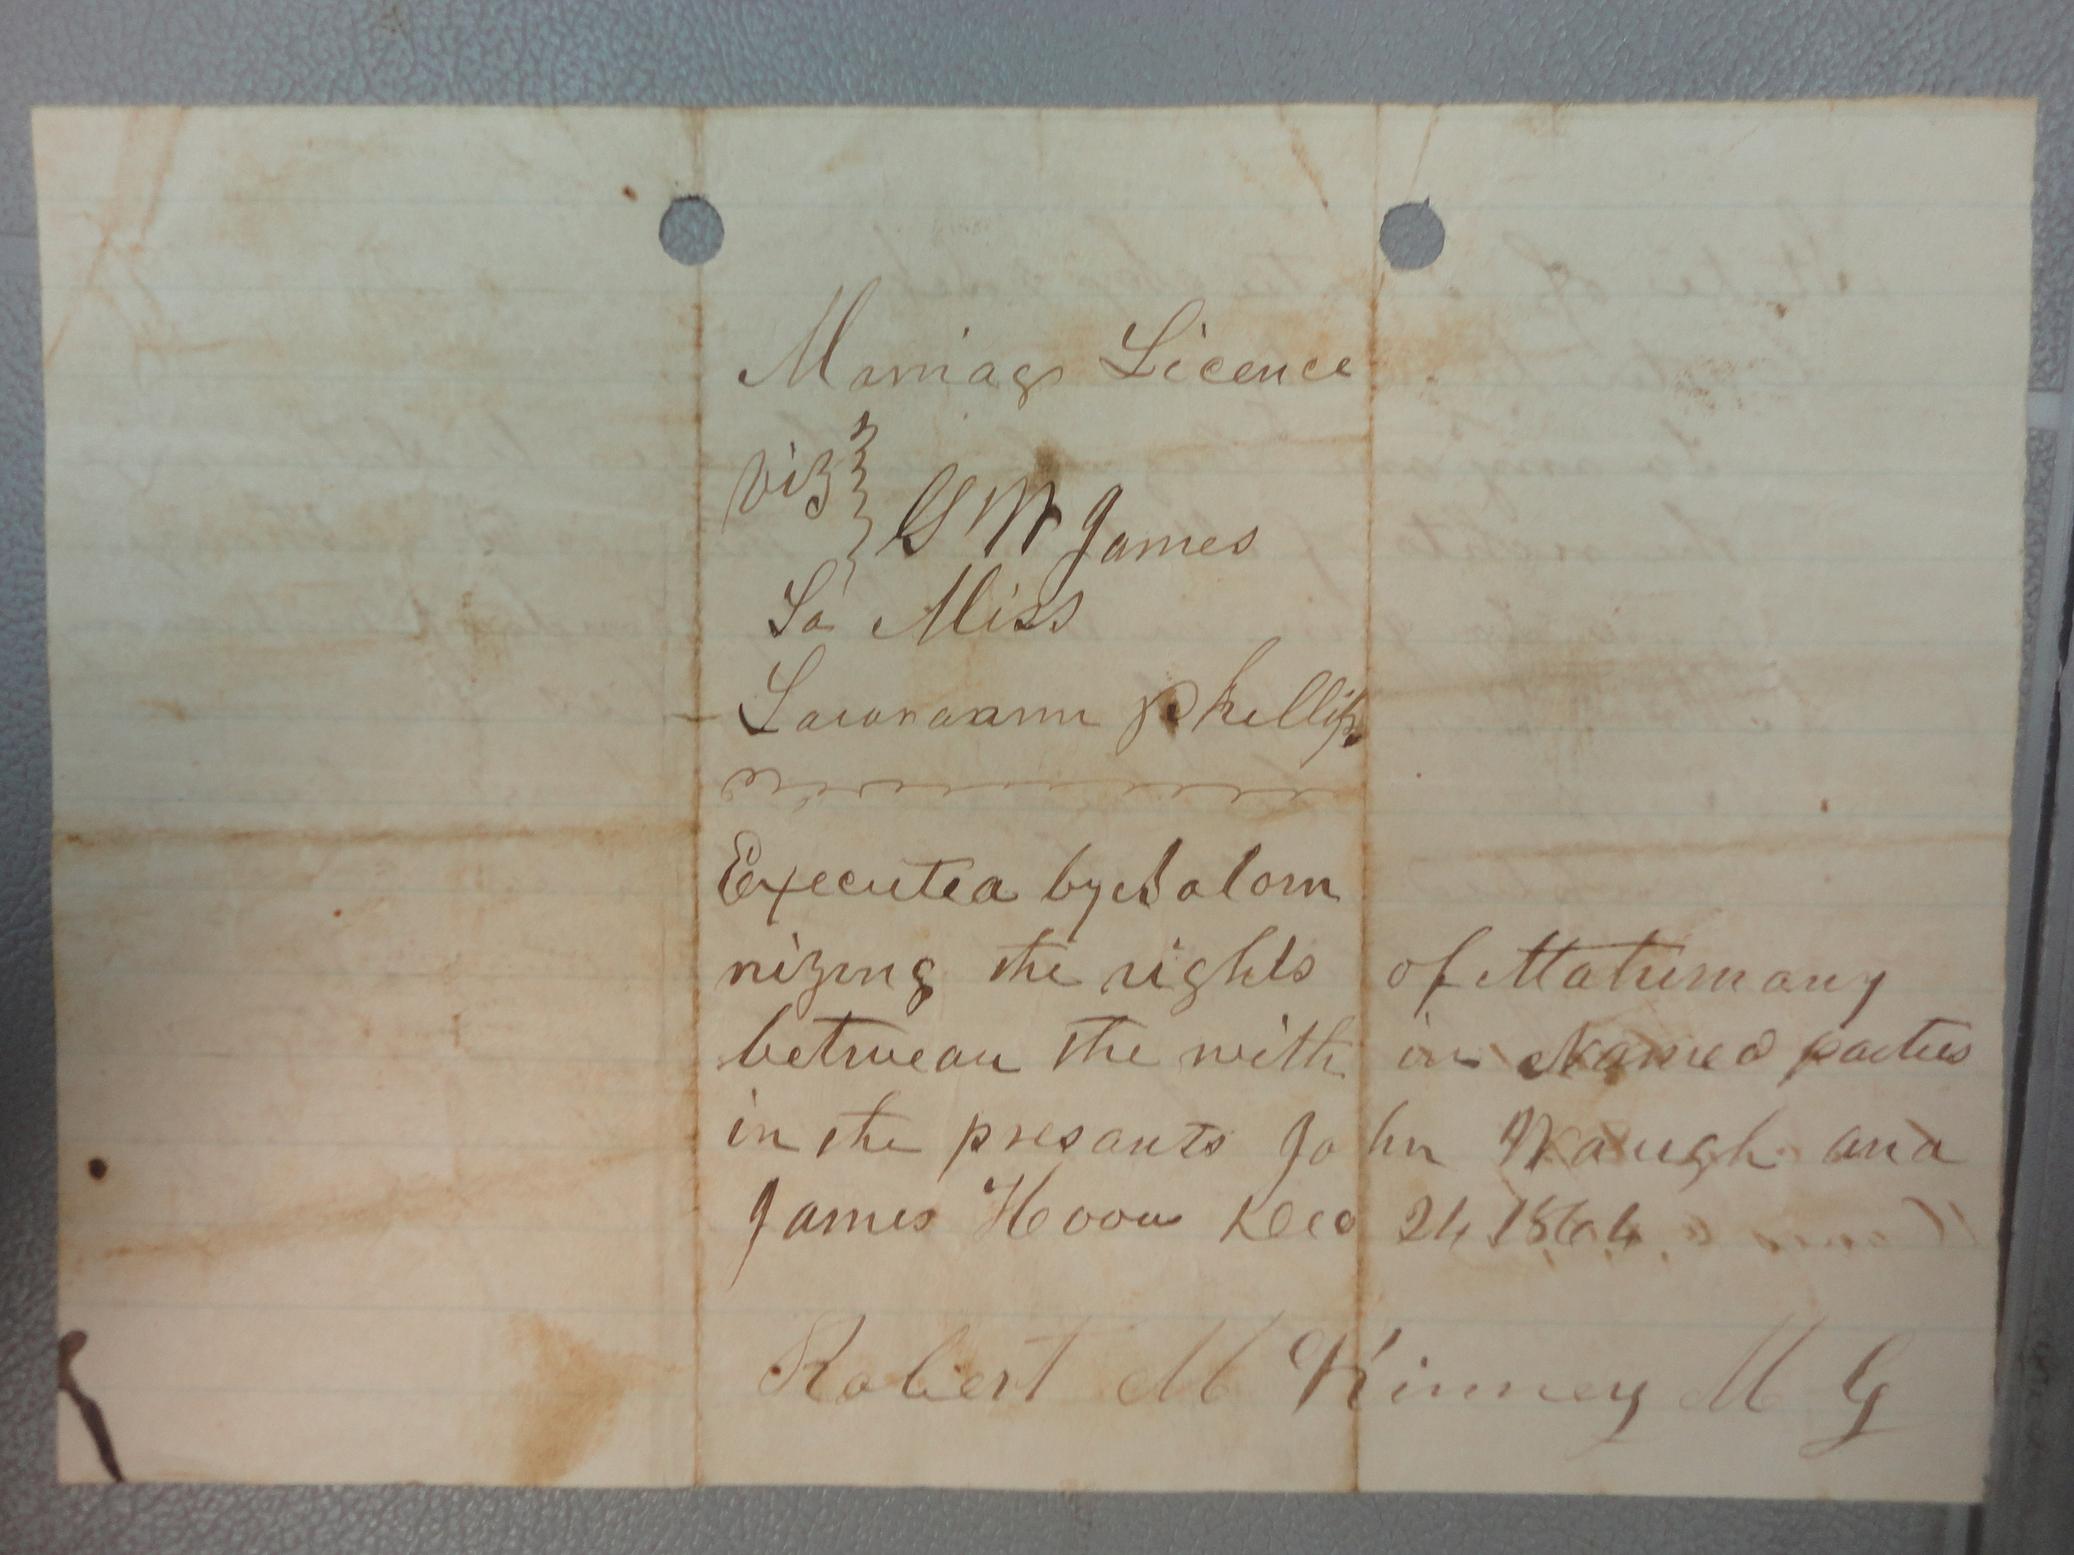 Marriage Licence
viz
G W James
To Miss
Phillips
Executed by Solom
nizing the rights of Matrimony
betwean the with in Named parties
in the presants John Waugh and
James Dec 24 1864
Robert M Kinney M G